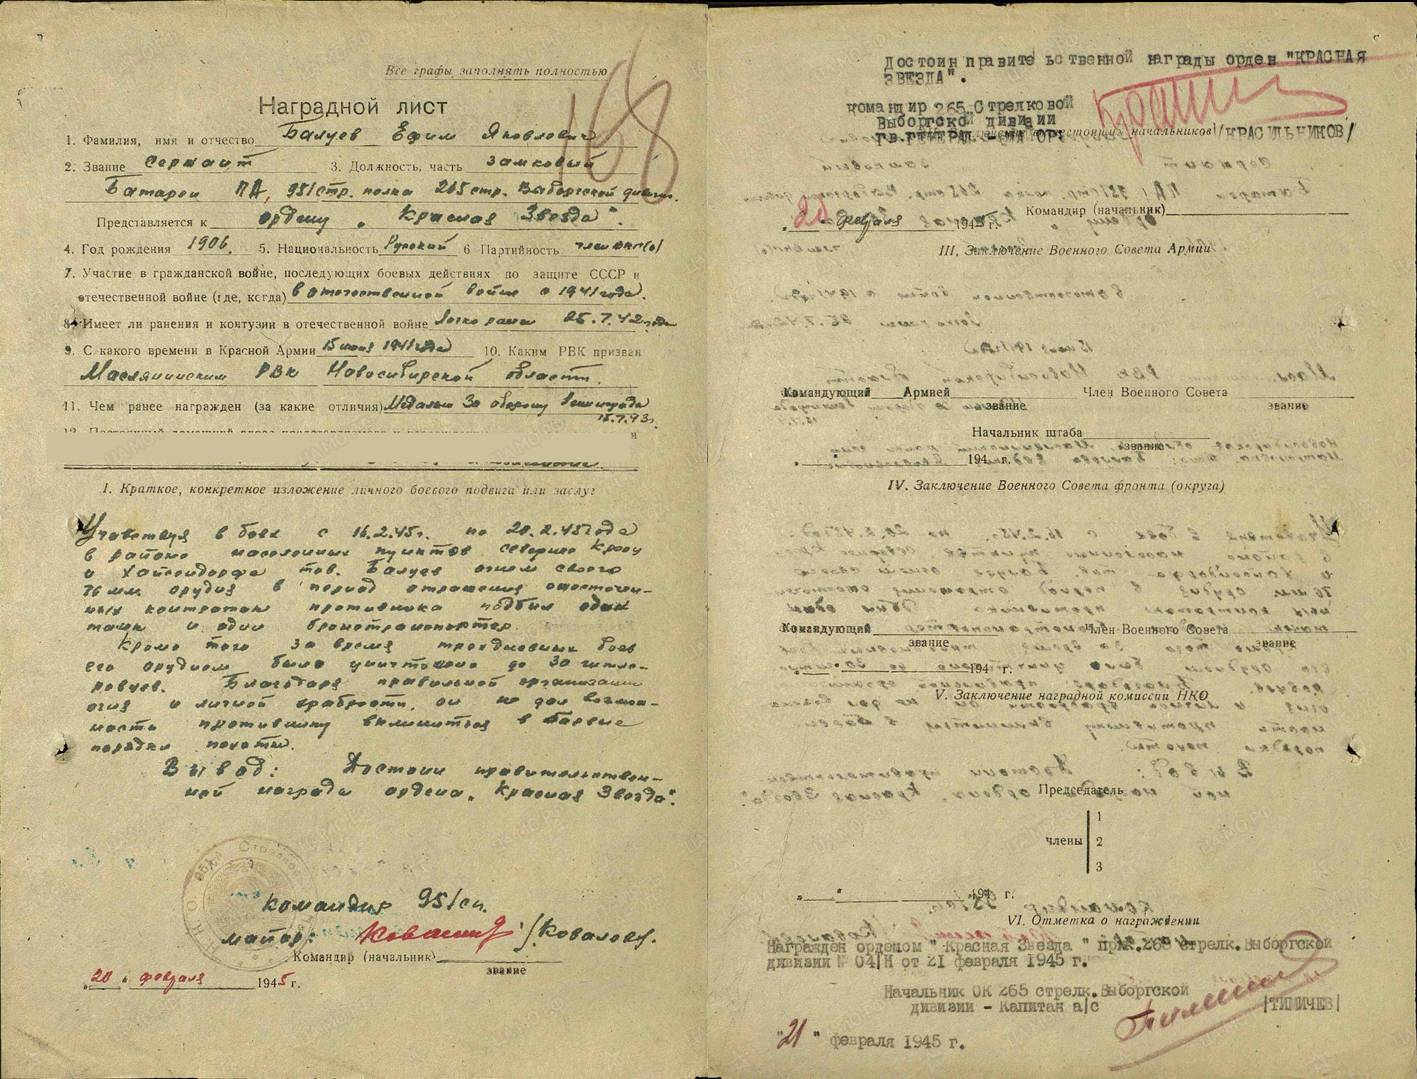 Все графы заполнять полностью
168
Наградной лист
1. Фамилия, имя и отчество Балуев Ефим Яковлевич
2. Звание Сержант 3. Должность, часть замковый
Батареи ПА, 951 стр. полка 265 стр. Выборгской дивиз.
Представляется к ордену „Красная Звезда".
4. Год рождения 1906. 5. Национальность Русский 6 Партийность член ВКП(б)
7. Участие в гражданской войне, последующих боевых действиях по защите СССР и
отечественной войне (где, когда) в отечественной войне с 1941 года.
8. Имеет ли ранения и контузии в отечественной войне Легко ранен 25.7.42 года
9. С какого времени в Красной Армии 15 июня 1941 года 10. Каким РВК призван
Маслянинским РВК Новосибирской области.
11. Чем ранее награжден (за какие отличия) Медалью За оборону Ленинграда
15.7.43г.
I. Краткое, конкретное изложение личного боевого подвига или заслуг
Участвуя в боях с 16.2.45г. по 20.2.45 года
в районе населенных пунктов северн
и тов. Балуев огнем своего
76 мм орудия в период отражения ожесточен-
ных контратак противника подбил один
танк и один бронетранспортер.
Кроме того за время трехдневных боев
его орудием было уничтожено до 30 гитле-
ровцев. Благодаря правильной организации
огня и личной храбрости, он не дал возмож-
ности противнику вклиниться в боевые
порядки пехоты.
Вывод: Достоин правительствен-
ной награды ордена „Красная Звезда".
Командир 951 сп.
майор: /Ковалев/.
Командир (начальник)
звание
„20" февраля 1945 г.
Достоин правительственной награды орден "КРАСНАЯ
ЗВЕЗДА".
Командир 265 Стрелковой
Выборгской дивизии
гв.ГЕНЕРАЛ - МАЙОР: /КРАСИЛЬНИКОВ/
Командир (начальник)
„20" февраля 1945 г.
III. Заключение Военного Совета Армии
Командующий Армией Член Военного Совета
звание звание
Начальник штаба
звание
" " 194 г.
IV. Заключение Военного Совета фронта (округа)
Командующий Член Военного Совета
звание звание
" " 194 г.
V. Заключение наградной комиссии НКО
Председатель
1
члены 2
3
" " 194 г.
VI. Отметка о награждении
Награжден орденом "Красная Звезда" пр. 265 стрелк. Выборгской
дивизии № 04/Н от 21 февраля 1945 г.
Начальник ОК 265 стрелк. Выборгской
дивизии - Капитан а/с |ТИМИЧЕВ|
"21" февраля 1945 г.